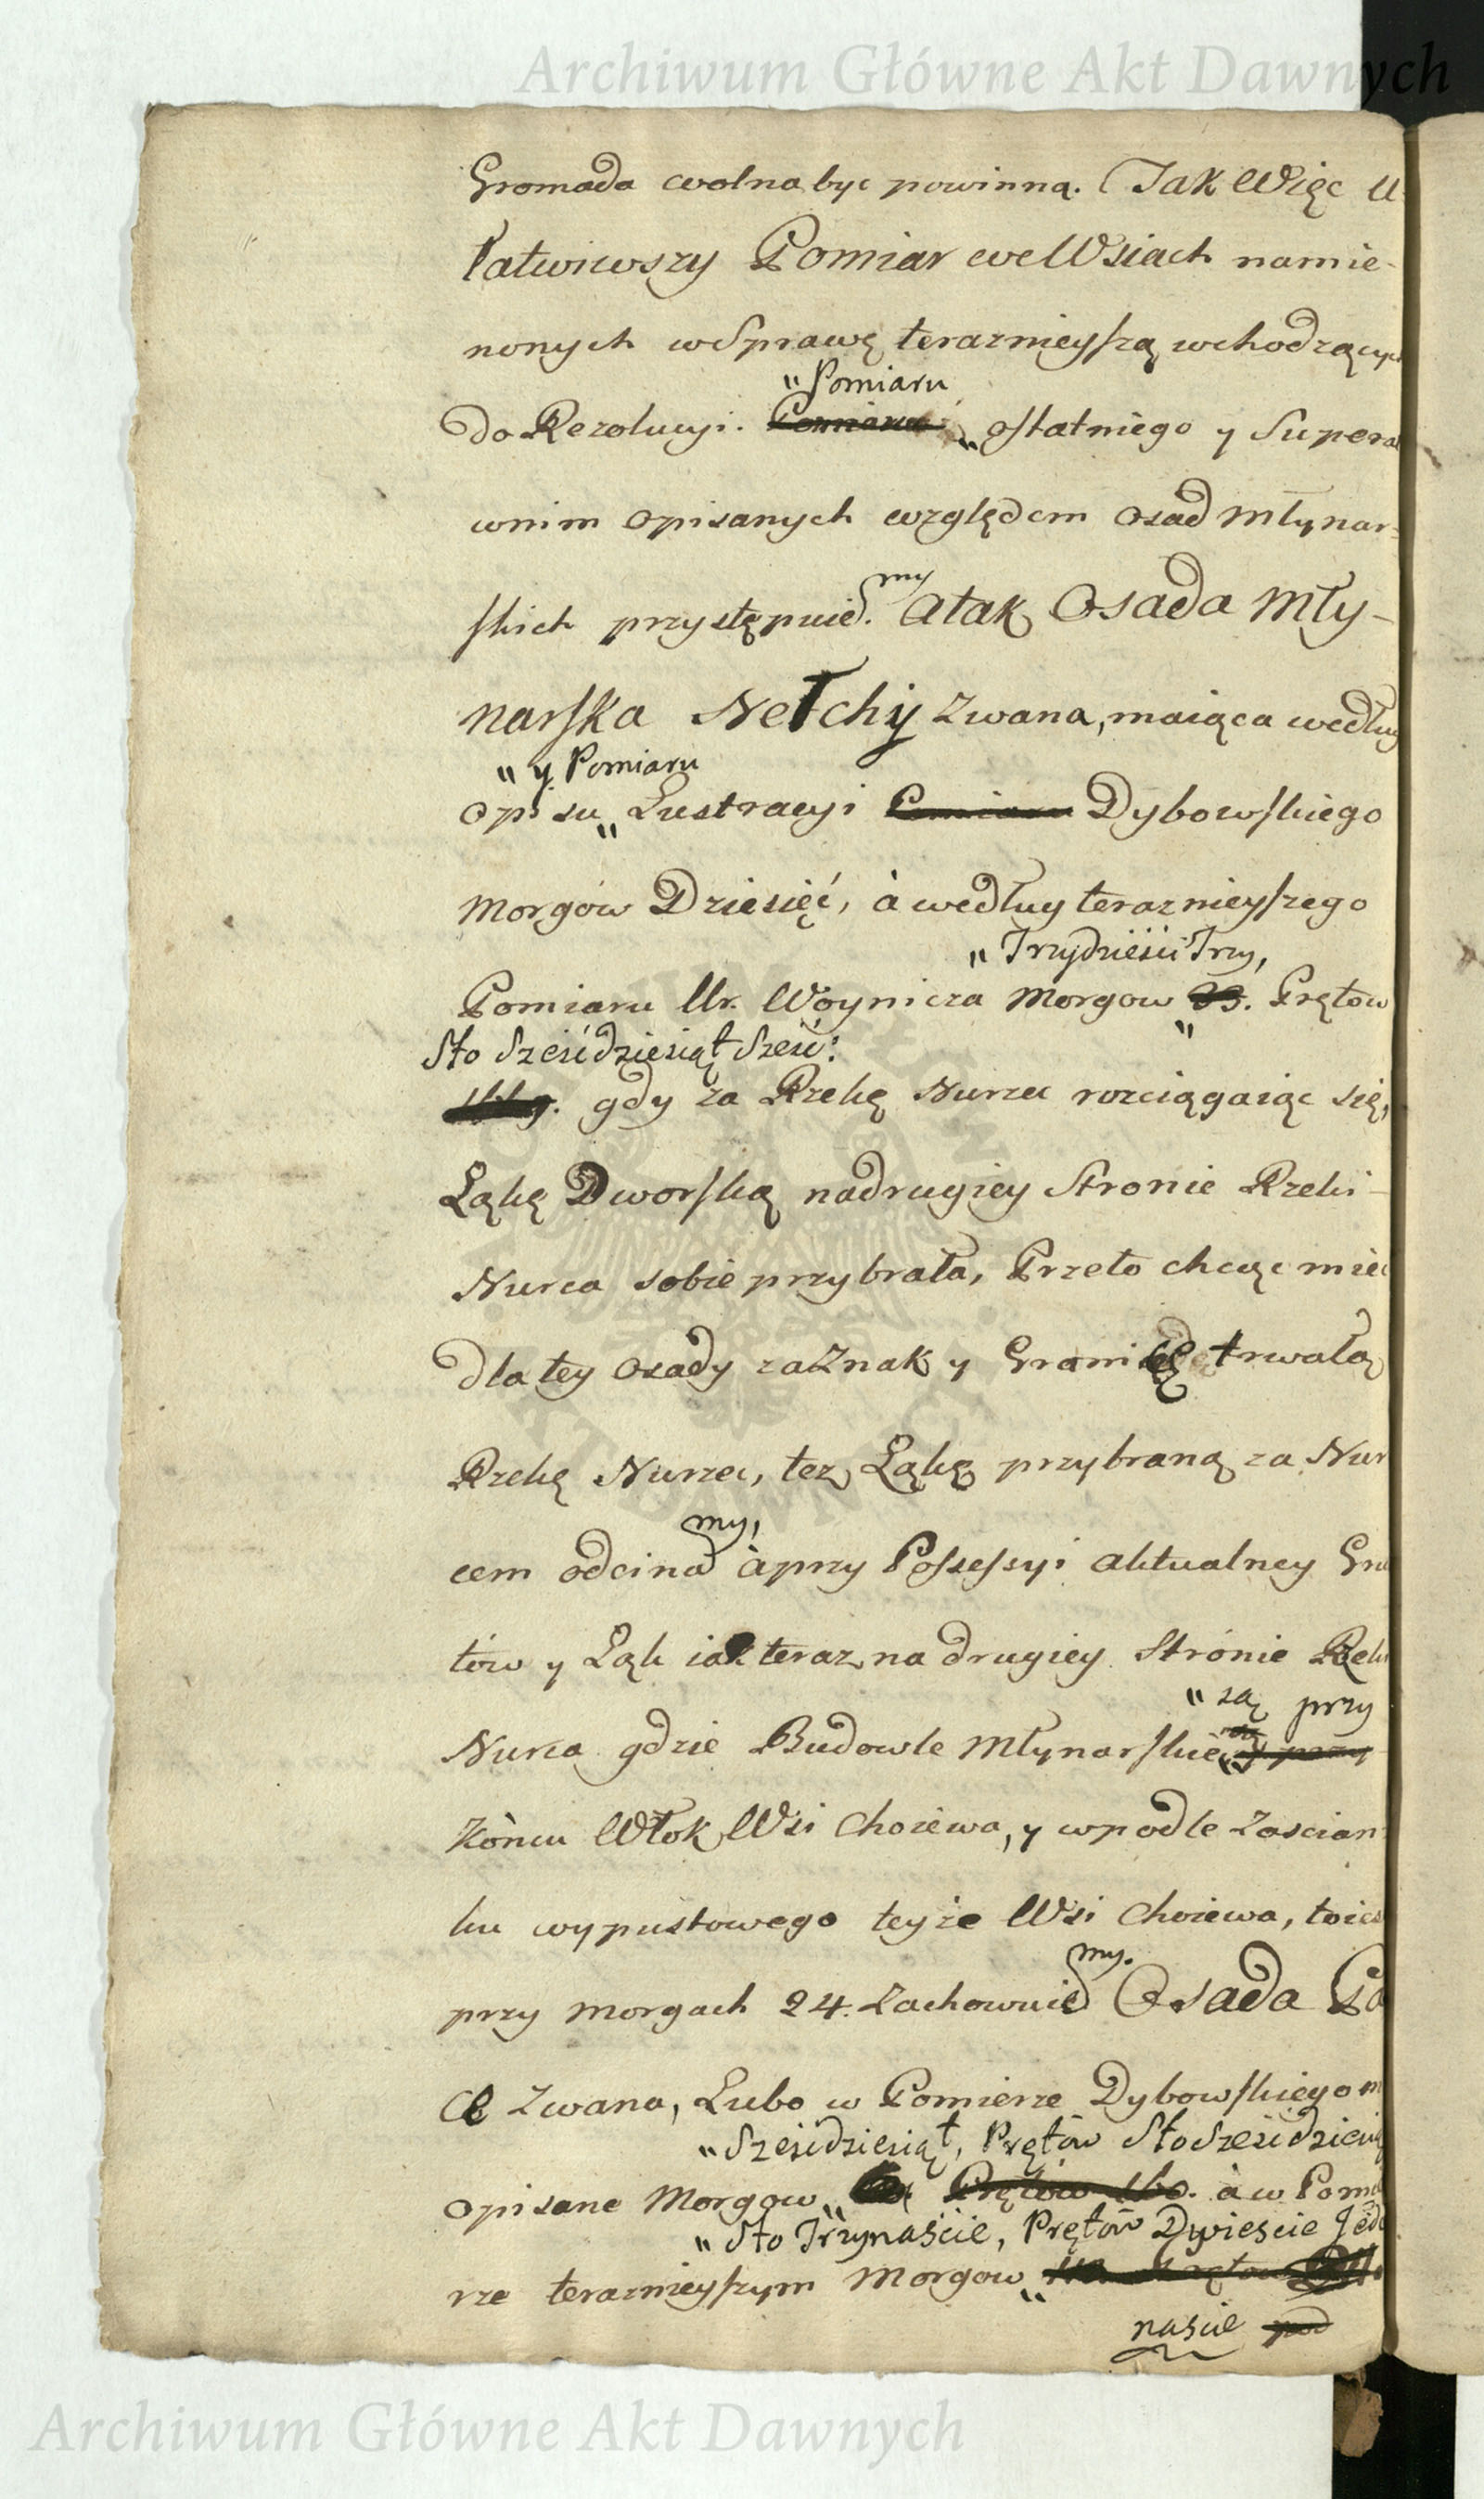 Archiwum Główne Akt Dawnych
Gromada wolna byc powinną. Jak Więc u
łatwiwszy Pomiar we Wsiach namie-
nonych w Sprawę terazniejszą wchodzących
" Pomiaru
do Rezolucyi. Pomiaru „ ostatniego y Supera
w nim opisanych względem Osad Młynar-
my
skich przystępuie. A tak Osada Mły-
narska Nełchy Zwana, maiąca według
" y Pomiaru
opisu „ Lustracyi Pomiaru Dybowskiego
Morgów Dziesięć, à według teraznieyszego
" Trzydzieści Trzy,
Pomiaru Ur. Woynicza Morgow 33. Prętow
Sto Sześćdziesiąt Sześć:
gdy za Rzekę Nurzec rozciągaiąc się,
Łąkę Dworską na drugiey Stronie Rzeki
Nurca sobie przybrała, Przeto chcąc mieć
dla tey Osady za Znak y Granicę trwałą
Rzekę Nurzec, też Łąkę przybraną za Nur
my,
cem odcina à przy Possessyi aktualney Gru
tów y Łąk iak teraz na drugiey Strónie Rzeki
" są przy
Nurca gdzie Budowle Młynarskie są przy
Końcu Włok Wsi Choiewa, y wpodle Zascian
ku wypustowego teyże Wsi Choiewa, toiest
my.
przy morgach 24. Zachowuie Osada Ga
Ce Zwana, Lubo w Pomierze Dybowskiego
" Sześćdziesiąt, Prętów Sto Sześćdziesią
opisane Morgow „ Prętów 160. à w Pomie
" Sto Trzynaście, Prętów Dwieście Jede
rze teraznieyszym Morgow „ Prętow
naście pod
Archiwum Główne Akt Dawnych